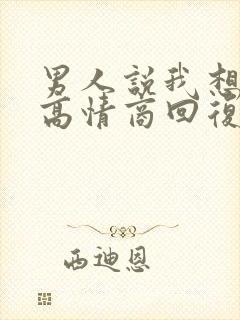 男人說我想
高情商回復
西迪恩